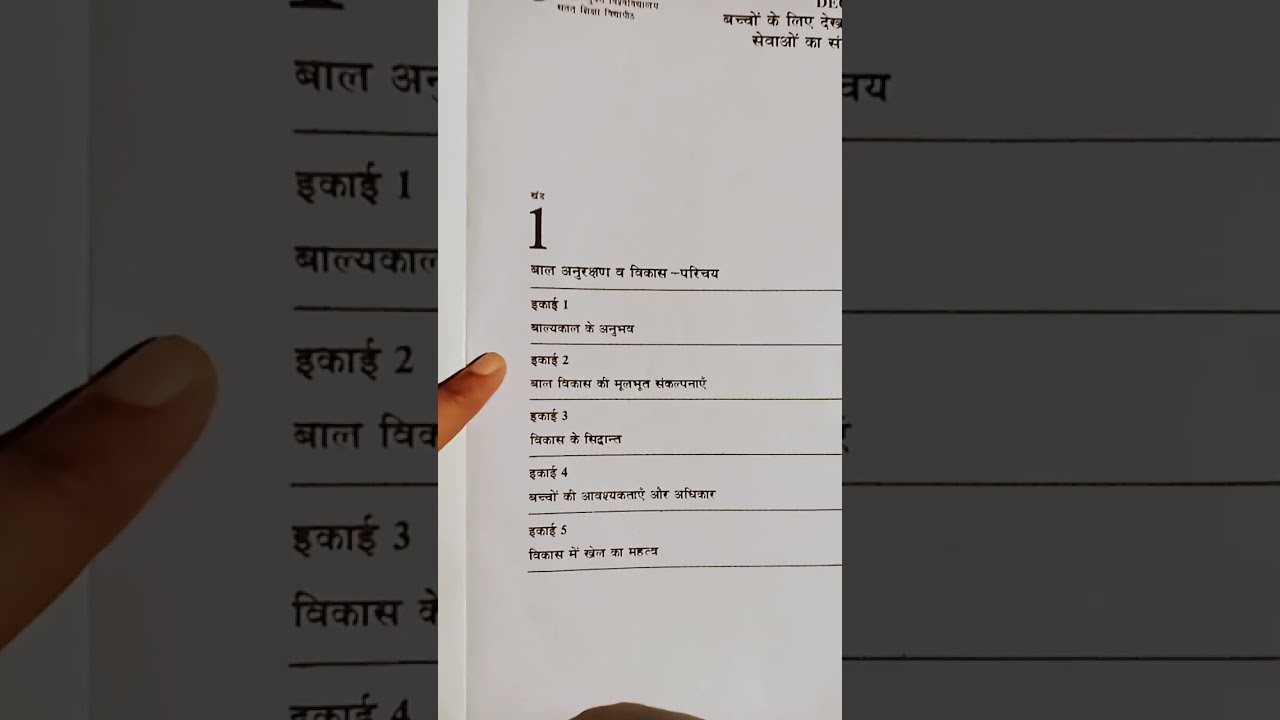 सतत शिक्षा विद्यापीठ
बच्चों के लिए
सेवाओं का
खंड
1
बाल अनुरक्षण व विकास –परिचय
इकाई 1
बाल्यकाल के अनुभव
इकाई 2
बाल विकास की मूलभूत संकल्पनाएँ
इकाई 3
विकास के सिद्धान्त
इकाई 4
बच्चों की आवश्यकताएँ और अधिकार
इकाई 5
विकास में खेल का महत्व